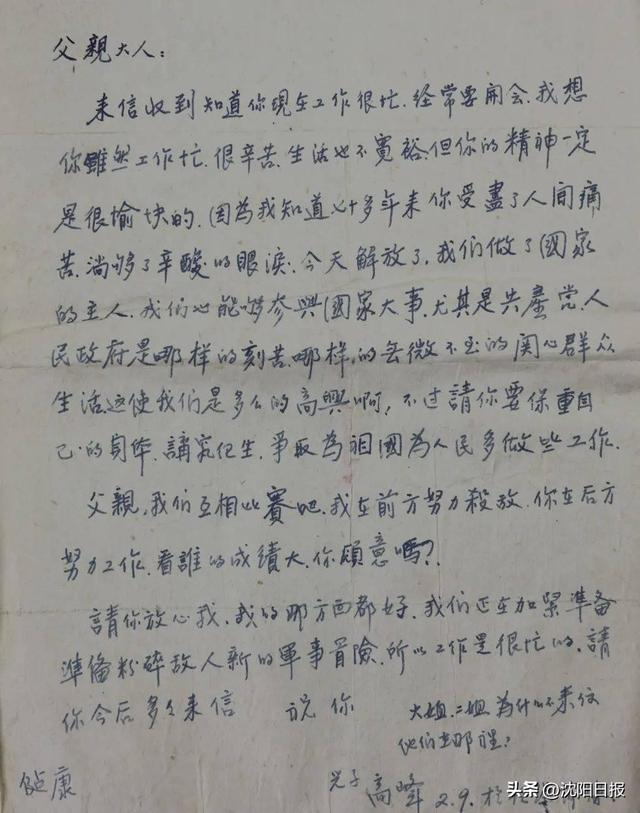 父親大人：
来信收到知道你現在工作很忙.経常要開会.我想
你雖然工作忙.很辛苦.生活也不寬裕.但你的精神一定
是很愉快的.因為我知道以十多年来你受盡了人间痛
苦.淌够了辛酸的眼淚.今天解放了.我们做了國家
的主人.我们也能够参與國家大事.尤其是共產党.人
民政府是哪样的刻苦.哪样的无微不至的関心群众
生活这使我们是多么的高興啊，不过請你要保重自
己的身体.講究衛生.爭取為祖國為人民多做些工作.
父親，我们互相比賽吧.我在前方努力殺敌.你在后方
努力工作.看誰的成績大.你願意嗎？
請你放心我.我的哪方面都好.我们正在加緊準备
準备粉碎敌人新的軍事冒險.所以工作是很忙的.請
你今后多多来信 祝你
大姐.二姐為什么不来信
他们在哪裡？
健康
兒子
高峰 2.9.於
头条 @沈阳日报